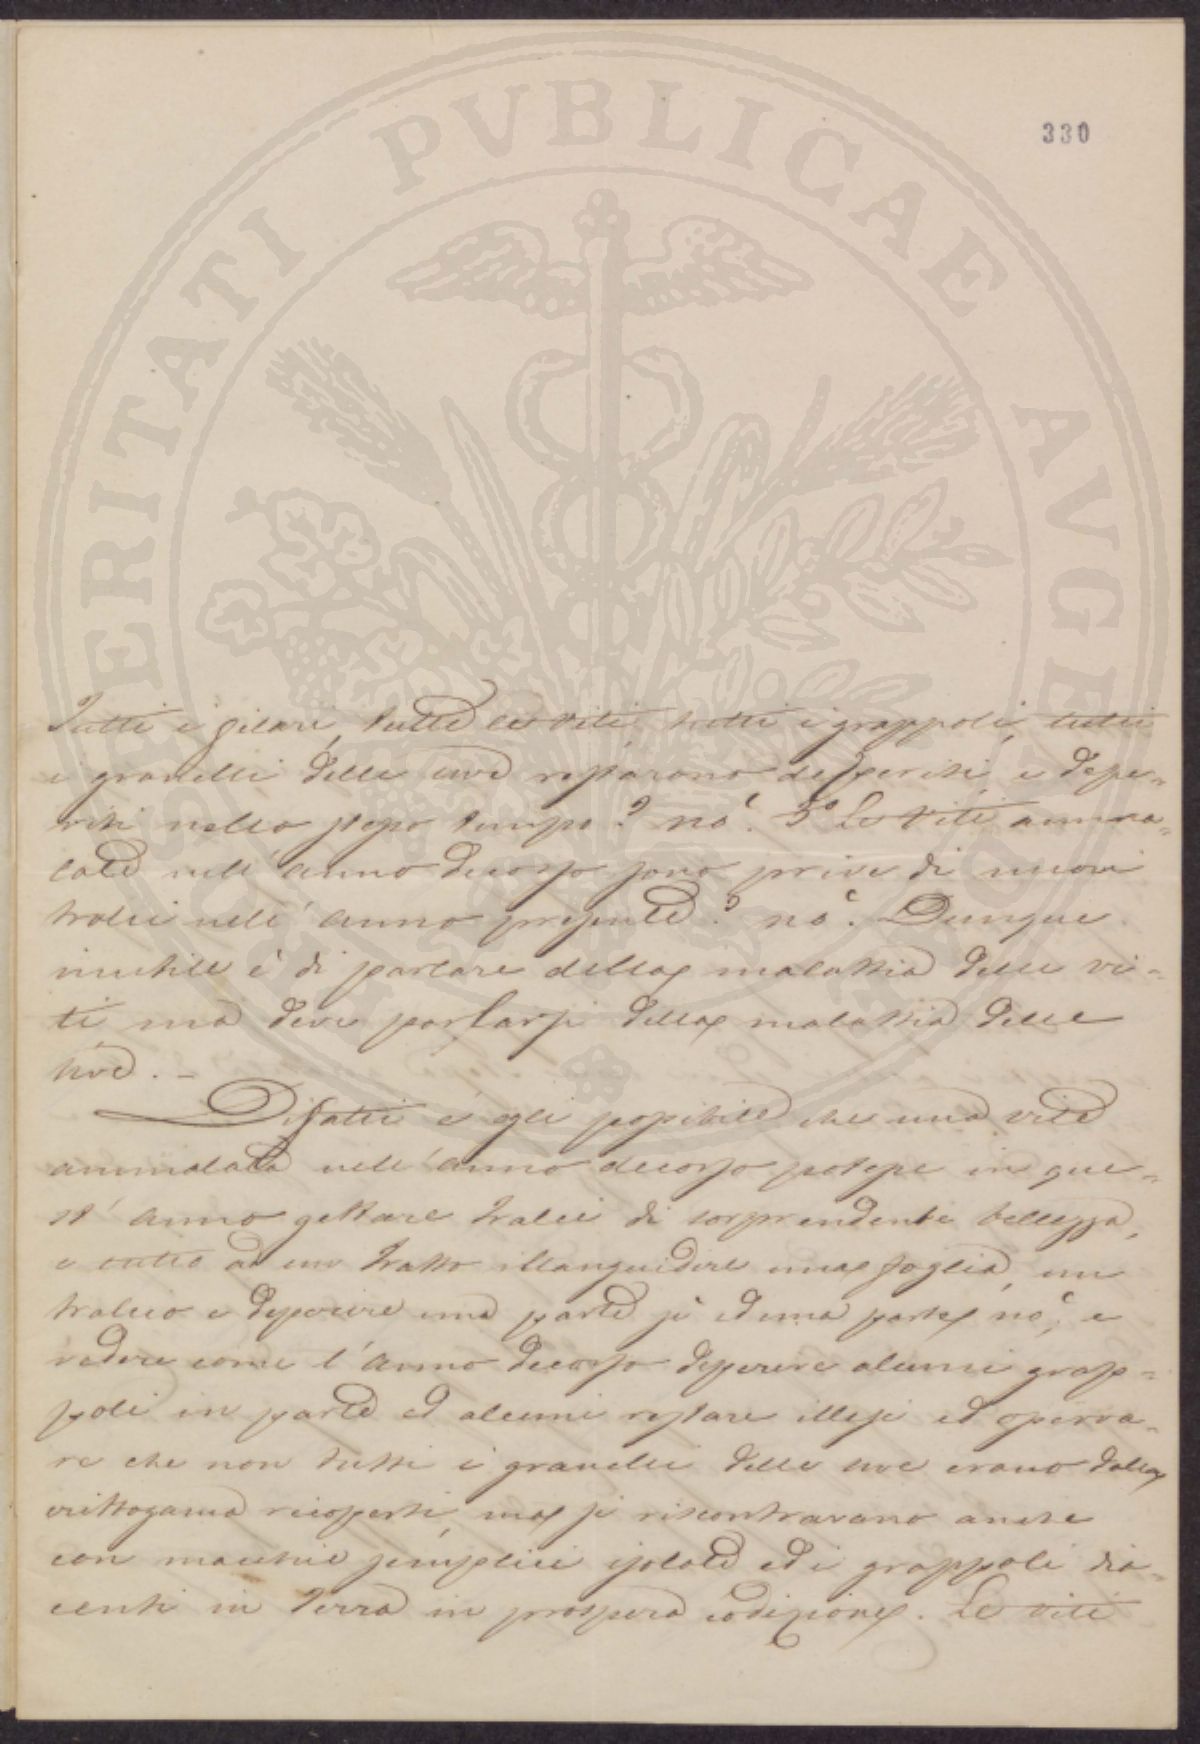 PROSPERITATI PVBLICAE AVGENDAE
330
Tutti i filari, tutte le viti, tutti i grappoli, tutti
i granelli delle uve restarono desperiti, e depe-
riti nello stesso tempo? nò. 3° Le viti amma-
late nell'anno decorso sono prive di nuovi
tralci nell'anno presente? nò. Dunque
inutile è di parlare della malattia delle vi-
ti ma deve parlarsi della malattia delle
uve. -
Difatti è egli possibile che una vite
ammalata nell'anno decorso potesse in que-
st'anno gettare tralci di sorprendente bellezza,
e tutto ad un tratto illanguidire una foglia, un
tralcio e deperire una parte sì ed una parte nò, e
vedere come l'anno decorso deperire alcuni grap-
poli in parte ed alcuni restare illesi ed osserva-
re che non tutti i granelli delle uve erano dalla
crittogama ricoperti, ma si riscontravano anche
con macchie semplici isolate ed i grappoli dia-
centi in terra in prospera codizione. Le viti